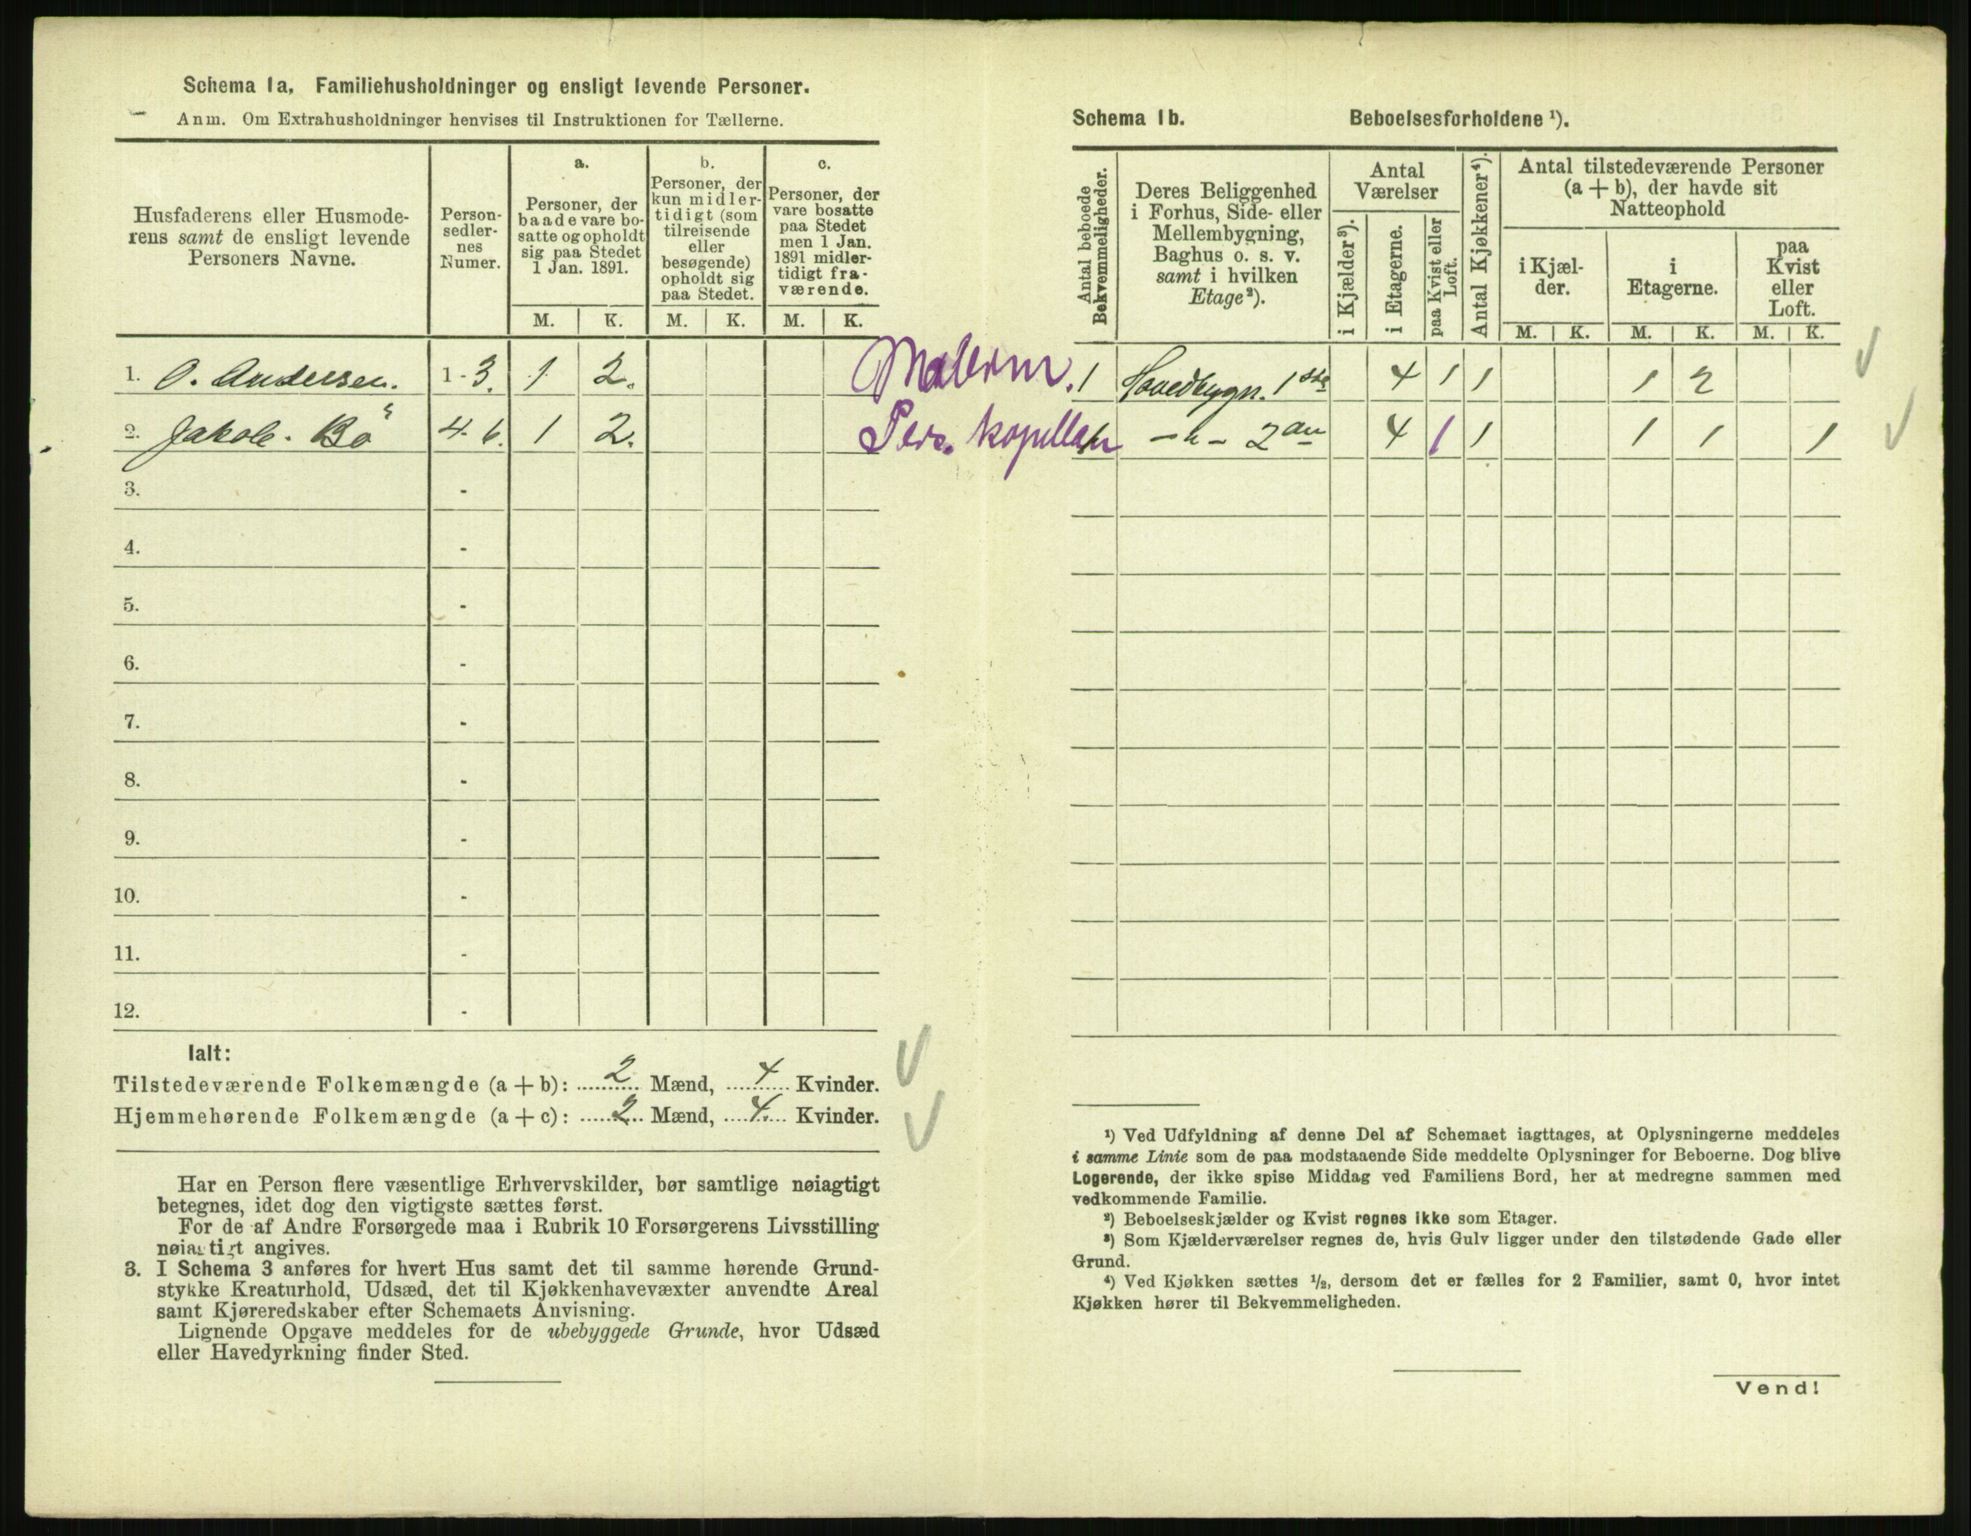 Schema 1a, Familiehusholdninger og ensligt levende Personer.
Anm. Om Extrahusholdninger henvises til Instruktionen for Tællerne.
Husfaderens eller Husmode-
rens samt de ensligt levende
Personers Navne.
Person-
sedler-
nes
Numer.
a.
Personer, der
baade vare bo-
satte og opholdt
sig paa Stedet
1 Jan. 1891.
b.
Personer, der
kun midler-
tidigt (som
tilreisende
eller
besøgende)
opholdt sig
paa Stedet.
c.
Personer, der
vare bosatte
paa Stedet
men 1 Jan.
1891 midler-
tidigt fra-
værende.
M. K. M. K. M. K.
1. O. Andersen. 1-3. 1 2.
2. Jakob. Bö 4-6. 1 2.
3. -
4. -
5. -
6. -
7. -
8. -
9. -
10. -
11. -
12. -
Ialt:
Tilstedeværende Folkemængde (a + b): 2 Mænd, 4 Kvinder.
Hjemmehørende Folkemængde (a + c): 2 Mænd, 4. Kvinder.
Har en Person flere væsentlige Erhvervskilder, bør samtlige nøiagtigt
betegnes, idet dog den vigtigste sættes først.
For de af Andre Forsørgede maa i Rubrik 10 Forsørgerens Livsstilling
nøiagtigt angives.
3. I Schema 3 anføres for hvert Hus samt det til samme hørende Grund-
stykke Kreaturhold, Udsæd, det til Kjøkkenhavevæxter anvendte Areal
samt Kjøreredskaber efter Schemaets Anvisning.
Lignende Opgave meddeles for de ubebyggede Grunde, hvor Udsæd
eller Havedyrkning finder Sted.
Schema 1b. Beboelsesforholdene ¹).
Antal beboede
Bekvemmeligheder.
Deres Beliggenhed
i Forhus, Side- eller
Mellembygning,
Baghus o. s. v.
samt i hvilken
Etage²).
Antal
Værelser
i Kjælder³).
i Etagerne.
paa Kvist eller
Loft.
Antal Kjøkkener⁴).
Antal tilstedeværende Personer
(a + b), der havde sit
Natteophold
i Kjæl-
der.
i
Etagerne.
paa
Kvist
eller
Loft.
M. K. M. K. M. K.
1 Hovedbygn. 1ste 4 1 1 1 2
Pers. kapellan - " - 2an 4 1 1 1 1 1
¹) Ved Udfyldning af denne Del af Schemaet iagttages, at Oplysningerne meddeles
i samme Linie som de paa modstaaende Side meddelte Oplysninger for Beboerne. Dog blive
Logerende, der ikke spise Middag ved Familiens Bord, her at medregne sammen med
vedkommende Familie.
²) Beboelseskjælder og Kvist regnes ikke som Etager.
³) Som Kjælderværelser regnes de, hvis Gulv ligger under den tilstødende Gade eller
Grund.
⁴) Ved Kjøkken sættes ½, dersom det er fælles for 2 Familier, samt 0, hvor intet
Kjøkken hører til Bekvemmeligheden.
Vend!